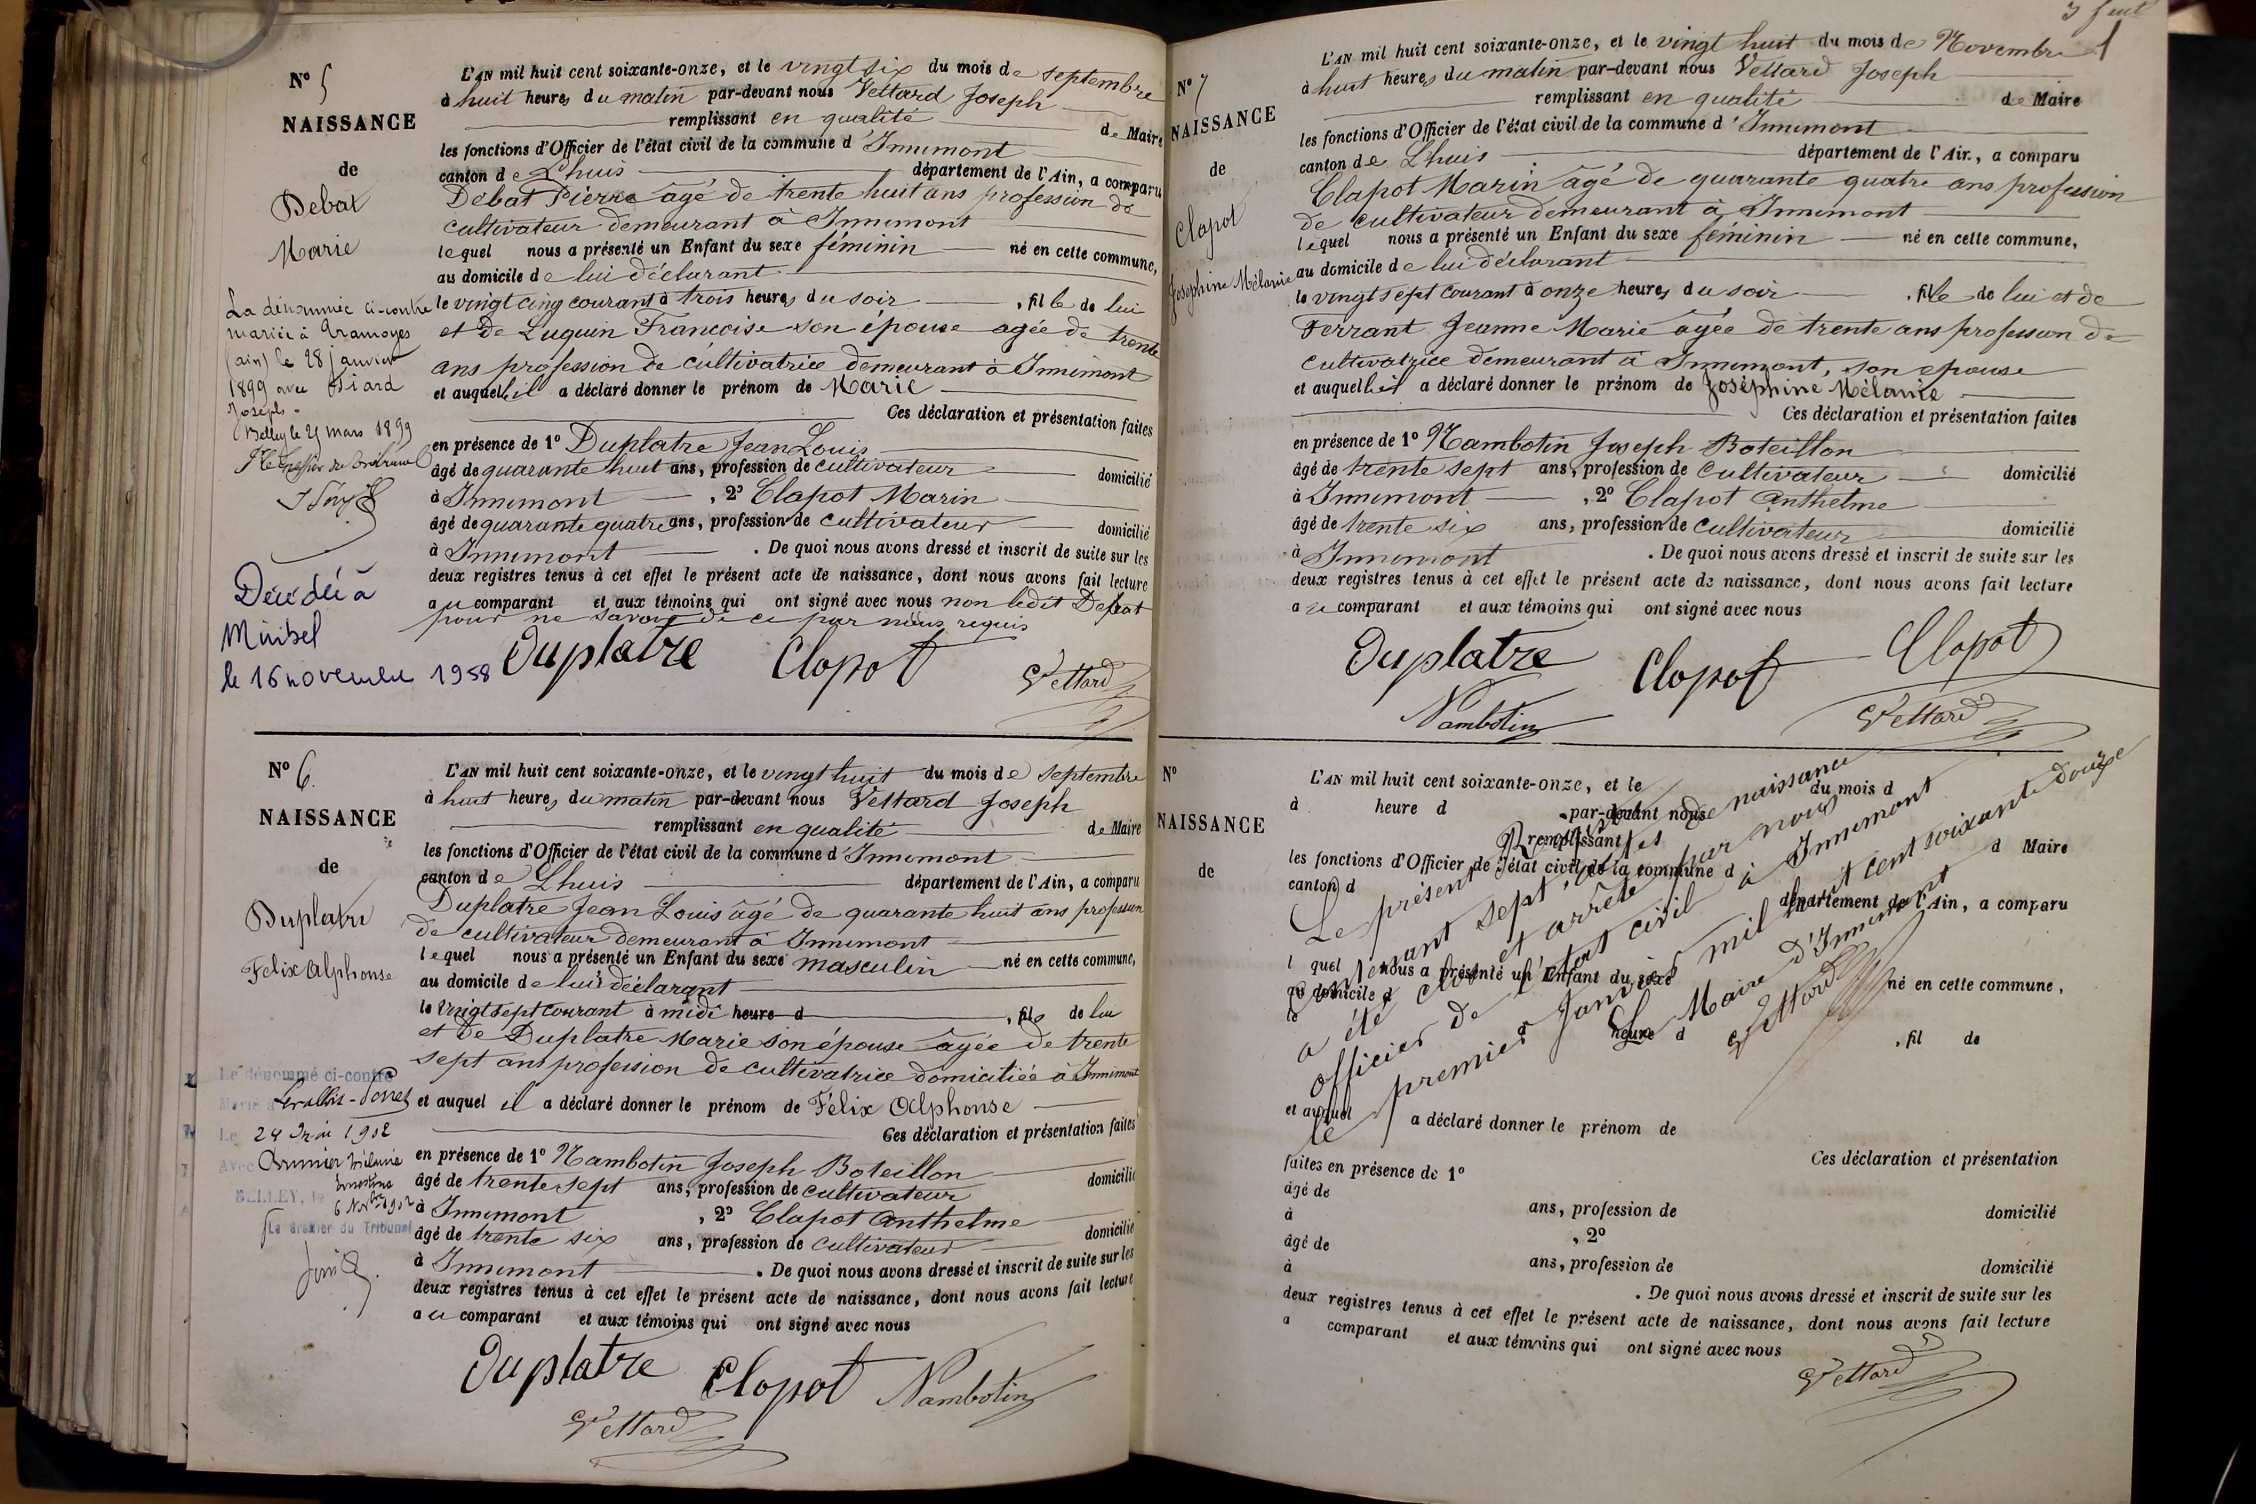 N° 5
NAISSANCE
de
Debat
Marie
La dénommée ci-contre
mariée à Tramoyes
(ain) le 28 janvier
1899 avec
Joseph.
Belley le 25 mars 1899
Décédée à
Miribel
le 16 novembre 1958
L'AN mil huit cent soixante-onze, et le vingt six du mois de septembre
à huit heures du matin par-devant nous Vettard Joseph
remplissant en qualité de Maire
les fonctions d'Officier de l'état civil de la commune d'Innimont
canton de Lhuis département de l'Ain, a comparu
Debat Pierre âgé de trente huit ans profession de
cultivateur demeurant à Innimont
lequel nous a présenté un Enfant du sexe féminin né en cette commune,
au domicile de lui déclarant
le vingt cinq courant à trois heures du soir, fille de lui
et de Luquin Françoise son épouse agée de trente
ans profession de cultivatrice demeurant à Innimont
et auquel il a déclaré donner le prénom de Marie
Ces déclaration et présentation faites
en présence de 1° Duplatre Jean Louis
âgé de quarante huit ans, profession de cultivateur domicilié
à Innimont, 2° Clapot Marin
âgé de quarante quatre ans, profession de cultivateur domicilié
à Innimont. De quoi nous avons dressé et inscrit de suite sur les
deux registres tenus à cet effet le présent acte de naissance, dont nous avons fait lecture
au comparant et aux témoins qui ont signé avec nous non ledit Debat
pour ne savoir de ce par nous requis
Duplatre Clapot Vettard
N° 6.
NAISSANCE
de
Duplatre
Felix Alphonse
Le dénommé ci-contre
Marié à Levallois-Perret
Le 24 Mai 1902
Avec Mélanie
Ernestine
BELLEY, le 6 Nov.bre 1902
Le Greffier du Tribunal
L'AN mil huit cent soixante-onze, et le vingt huit du mois de septembre
à huit heures du matin par-devant nous Vettard Joseph
remplissant en qualité de Maire
les fonctions d'Officier de l'état civil de la commune d'Innimont
canton de Lhuis département de l'Ain, a comparu
Duplatre Jean Louis âgé de quarante huit ans profession
de cultivateur demeurant à Innimont
lequel nous a présenté un Enfant du sexe masculin né en cette commune,
au domicile de lui déclarant
le vingt sept courant à midi heure d, fils de lui
et de Duplatre Marie son épouse âgée de trente
sept ans profession de cultivatrice domiciliée à Innimont
et auquel il a déclaré donner le prénom de Félix Alphonse
Ces déclaration et présentation faites
en présence de 1° Nambotin Joseph Boteillon
âgé de trente sept ans, profession de cultivateur domicilié
à Innimont, 2° Clapot Anthelme
âgé de trente six ans, profession de cultivateur domicilié
à Innimont. De quoi nous avons dressé et inscrit de suite sur les
deux registres tenus à cet effet le présent acte de naissance, dont nous avons fait lecture
au comparant et aux témoins qui ont signé avec nous
Duplatre Clapot Nambotin
Vettard
N° 7
NAISSANCE
de
Clapot
Josephine Mélanie
L'AN mil huit cent soixante-onze, et le vingt huit du mois de Novembre
à huit heures du matin par-devant nous Vettard Joseph
remplissant en qualité de Maire
les fonctions d'Officier de l'état civil de la commune d'Innimont
canton de Lhuis département de l'Ain, a comparu
Clapot Marin âgé de quarante quatre ans profession
de cultivateur demeurant à Innimont
lequel nous a présenté un Enfant du sexe féminin né en cette commune,
au domicile de lui déclarant
le vingt sept courant à onze heures du soir, fille de lui et de
Ferrant Jeanne Marie âgée de trente ans profession de
cultivatrice demeurant à Innimont, son epouse
et auquel il a déclaré donner le prénom de Joséphine Mélanie
Ces déclaration et présentation faites
en présence de 1° Nambotin Joseph Boteillon
âgé de trente sept ans, profession de cultivateur domicilié
à Innimont, 2° Clapot Anthelme
âgé de trente six ans, profession de cultivateur domicilié
à Innimont. De quoi nous avons dressé et inscrit de suite sur les
deux registres tenus à cet effet le présent acte de naissance, dont nous avons fait lecture
au comparant et aux témoins qui ont signé avec nous
Duplatre Clapot Clapot
Nambotin Vettard
N°
NAISSANCE
de
L'AN mil huit cent soixante-onze, et le du mois d
à heure d par-devant nous
remplissant d Maire
les fonctions d'Officier de l'état civil de la commune d
canton d département de l'Ain, a comparu
l quel nous a présenté un Enfant du sexe né en cette commune,
au domicile d
le heure d, fil de
et auquel a déclaré donner le prénom de
Ces déclaration et présentation
faites en présence de 1°
âgé de ans, profession de domicilié
à, 2°
âgé de ans, profession de domicilié
à. De quoi nous avons dressé et inscrit de suite sur les
deux registres tenus à cet effet le présent acte de naissance, dont nous avons fait lecture
a comparant et aux témoins qui ont signé avec nous
Le présent Registre
contenant sept actes de naissance
a été clos et arrêté par nous
officier de l'état civil à Innimont
le premier Janvier mil huit cent soixante douze
Le Maire d'Innimont
Vettard
Vettard